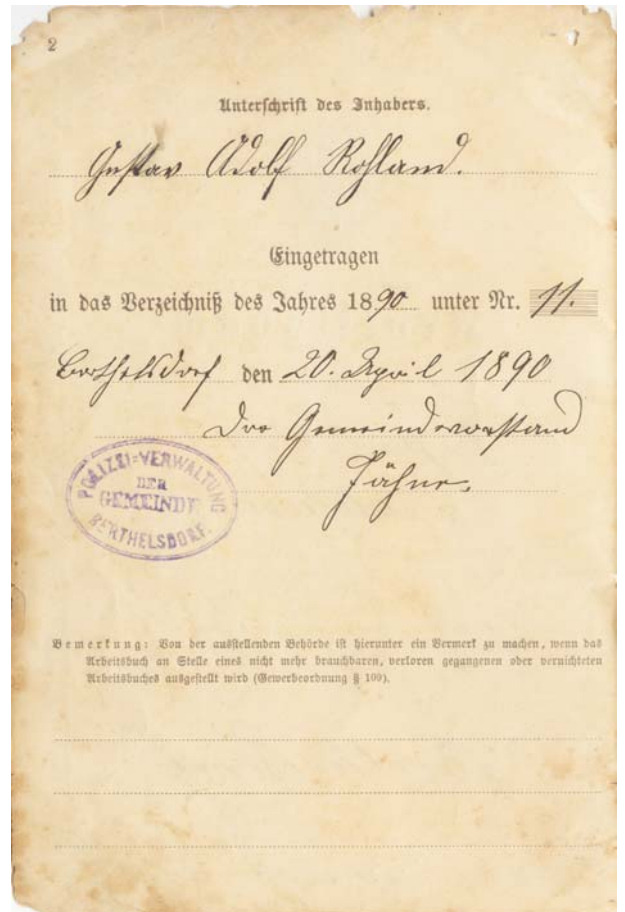 2
Unterschrift des Inhabers.
Gustav Adolf Rohland.
Eingetragen
in das Verzeichniß des Jahres 1890 unter Nr. 11.
Berthelsdorf den 20. April 1890
Der Gemeindevorstand
Jähne.
POLIZEI=VERWALTUNG
DER
GEMEINDE
BERTHELSDORF.
Bemerkung: Von der ausstellenden Behörde ist hierunter ein Vermerk zu machen, wenn das
Arbeitsbuch an Stelle eines nicht mehr brauchbaren, verloren gegangenen oder vernichteten
Arbeitsbuches ausgestellt wird (Gewerbeordnung § 109).